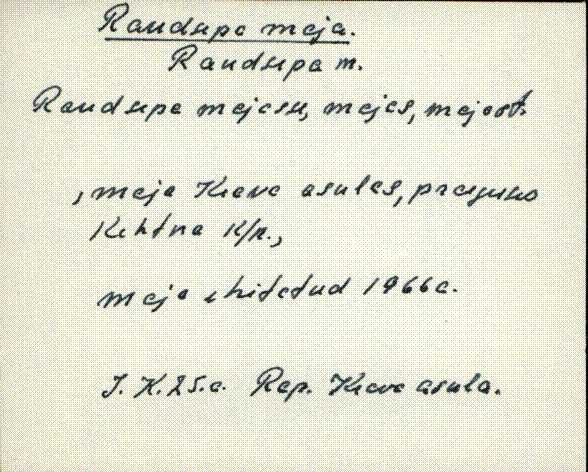 Raudsepa maja.
Raudsepa m.
Raudsepa majasu, majas, majast.
, maja Keava asulas, praegune
Kehtna K/n.,
maja ehitatud 1966 a.
J. K. 25. a. Rap. Keava asula.